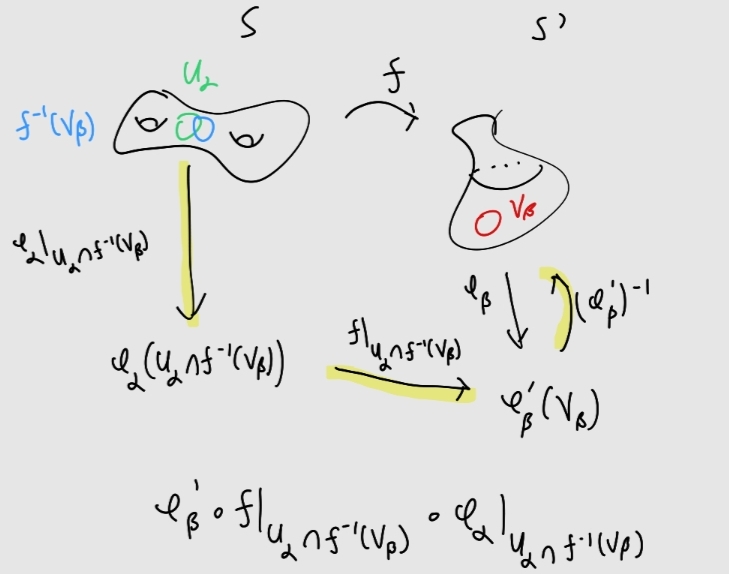 S S'
U_α
f
f⁻¹(V_β)
V_β
φ_α|_{U_α∩f⁻¹(V_β)}
φ_β (φ'_β)⁻¹
φ_α(U_α∩f⁻¹(V_β)) f|_{U_α∩f⁻¹(V_β)}
φ'_β(V_β)
φ'_β ∘ f|_{U_α∩f⁻¹(V_β)} ∘ φ_α|_{U_α∩f⁻¹(V_β)}